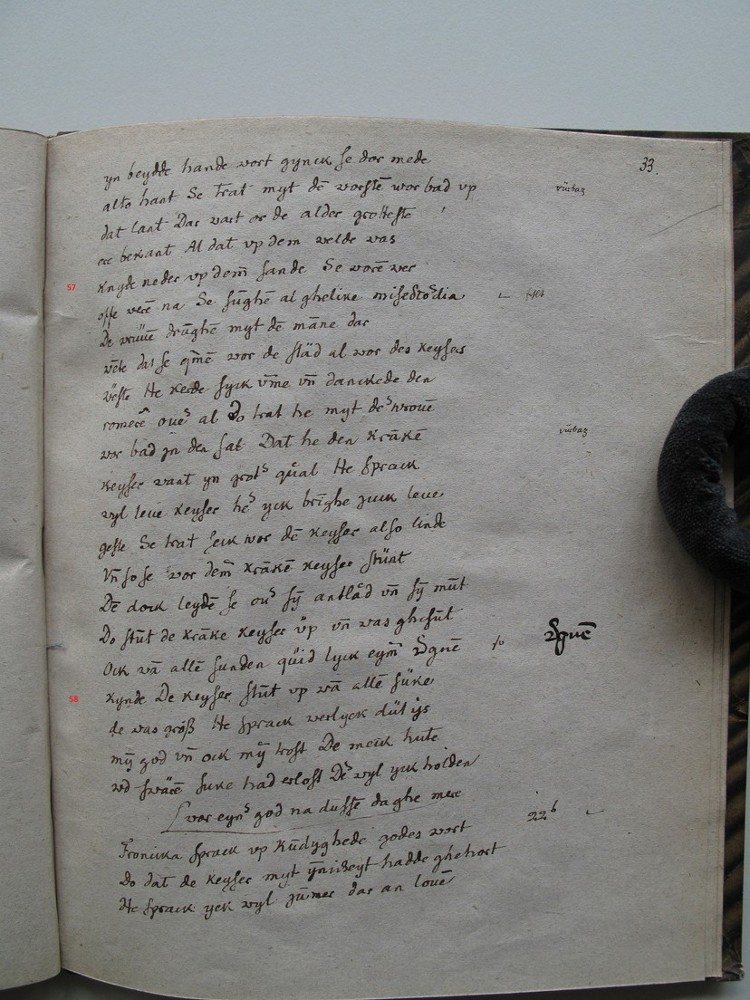 33.
yn beydde hande vort gynck se dar mede
alto hant Se trat myt dē vorstē vor bad vp
vürbaz
dat lant Dar vart or de alder grotteste
ere bekant Al dat vp dem velde was
57
Knyde neder vp dem̄ sande Se vorē ver
offe verē na Se sūghē al ghelike misericōdia
De vrūwē drūghē myt dē māne dar
wēte dat se qmē vor de stād al vor des keysers
vēste He kerde syck v̄me vn̄ danckede den
romerē oue͛ al Do trat he myt de͛ vrouē
vor bad jn den sal Dat he den krākē
vürbaz
keyser vant yn grot͛ qual He sprack
vyl leue keyser he͛ yck brīghe juck leue
geste Se trat seck vor dē keyser also linde
Vn̄ so se vor dem̄ krākē keyser stūnt
Dē dock leydē se ou͛ sȳ antlād vn̄ sȳ mūt
Do stūt de krāke keyser ūp vn̄ was ghesūt
Ock vā allē sunden quid lyck eym̄
58
kynde De keyser stūt vp vā allē sūke
de was grōß He sprack verlyck dūt ys
mȳ god vn̄ ock mȳ trost De meck hute
vā swārē suke had erlost De͛ wyl yck holden
vor eyn͛ god na dusse daghe mere
22b
Fronicka sprack vp kūdyghede godes wort
Do dat de keyser myt ynnicheyt hadde ghehort
He sprack yck wyl jūmer dar an louē